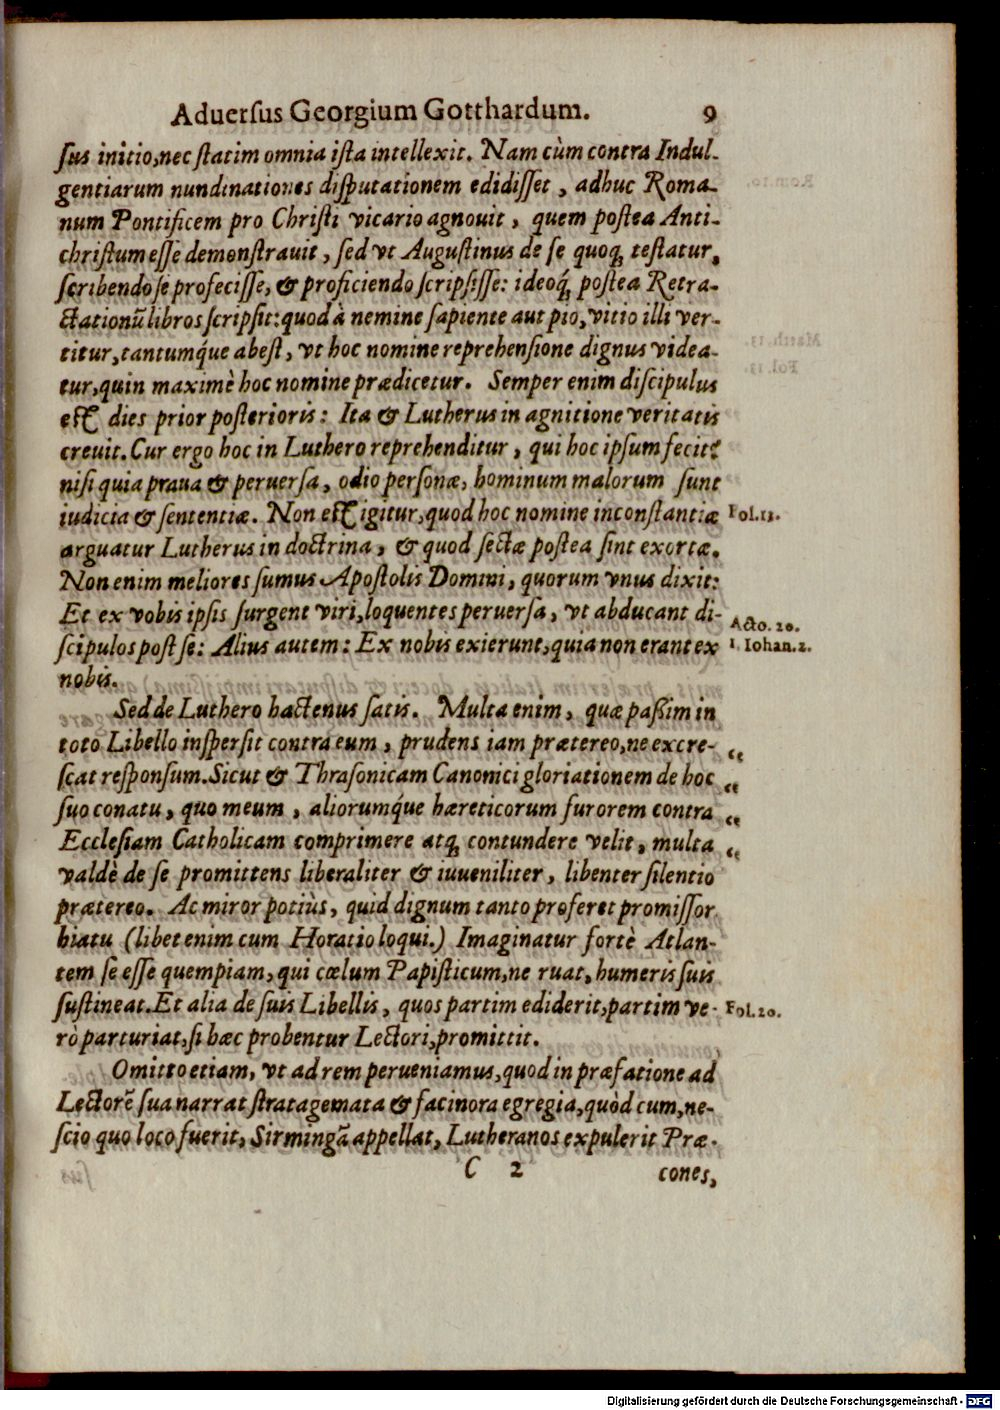 Aduersus Georgium Gotthardum. 9
sus initio, nec statim omnia ista intellexit. Nam cùm contra Indul-
gentiarum nundinationes disputationem edidisset, adhuc Roma-
num Pontificem pro Christi vicario agnouit, quem postea Anti-
christum esse demonstrauit, sed vt Augustinus de se quoq; testatur,
scribendo se profecisse, & proficiendo scripsisse: ideoq́; postea Retra-
ctationũ libros scripsit: quod à nemine sapiente aut pio, vitio illi ver-
titur, tantumq́ue abest, vt hoc nomine reprehensione dignus videa-
tur, quin maximè hoc nomine prædicetur. Semper enim discipulus
est dies prior posterioris: Ita & Lutherus in agnitione veritatis
creuit. Cur ergo hoc in Luthero reprehenditur, qui hoc ipsum fecit?
nisi quia praua & peruersa, odio personæ, hominum malorum sunt
iudicia & sententiæ. Non est igitur, quod hoc nomine inconstantiæ
Fol.13.
arguatur Lutherus in doctrina, & quod sectæ postea sint exortæ.
Non enim meliores sumus Apostolis Domini, quorum vnus dixit:
Et ex vobis ipsis surgent viri, loquentes peruersa, vt abducant di-
Acto. 20.
scipulos post se: Alius autem: Ex nobis exierunt, quia non erant ex
1. Iohan.2.
nobis.
Sed de Luthero hactenus satis. Multa enim, quæ paßim in
toto Libello inspersit contra eum, prudens iam prætereo, ne excre-
“
scat responsum. Sicut & Thrasonicam Canonici gloriationem de hoc
“
suo conatu, quo meum, aliorumq́ue hæreticorum furorem contra
“
Ecclesiam Catholicam comprimere atq; contundere velit, multa
“
valdè de se promittens liberaliter & iuueniliter, libenter silentio
prætereo. Ac miror potiùs, quid dignum tanto proferet promissor
hiatu (libet enim cum Horatio loqui.) Imaginatur fortè Atlan-
tem se esse quempiam, qui cœlum Papisticum, ne ruat, humeris suis
sustineat. Et alia de suis Libellis, quos partim ediderit, partim ve-
Fol.20.
rò parturiat, si hæc probentur Lectori, promittit.
Omitto etiam, vt ad rem perueniamus, quod in præfatione ad
Lectorẽ sua narrat stratagemata & facinora egregia, quòd cum, ne-
scio quo loco fuerit, Sirmingã appellat, Lutheranos expulerit Præ-
C 2 cones,
Digitalisierung gefördert durch die Deutsche Forschungsgemeinschaft - DFG